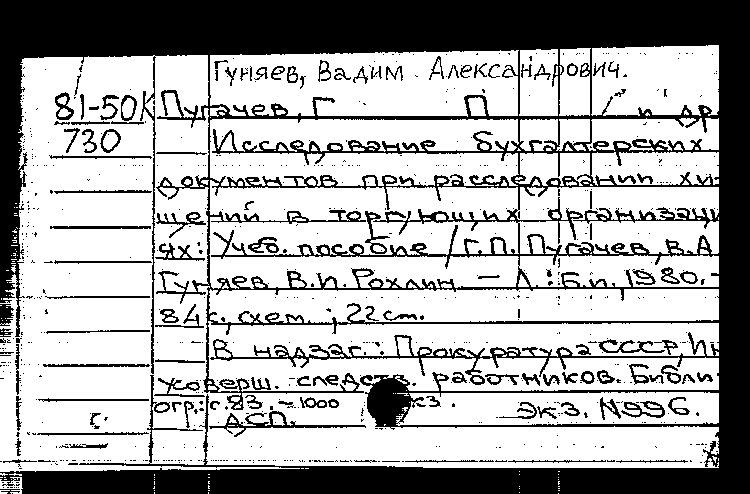 Гуняев, Вадим Александрович.
81-50К Пугачев, Г П и др
730 Исследование бухгалтерских
документов при расследовании хи-
щений в торгующих организаци
ях: Учеб. пособие / Г.П. Пугачев, В.А
Гуняев, В.И. Рохлин. — Л.: Б.и., 1980.-
84 с., схем.; 22 cm.
В надзаг.: Прокуратура СССР, Ин
усоверш. следств. работников. Библи-
огр.: с. 83. - 1000 экз. Экз. N996.
с. ДСП.